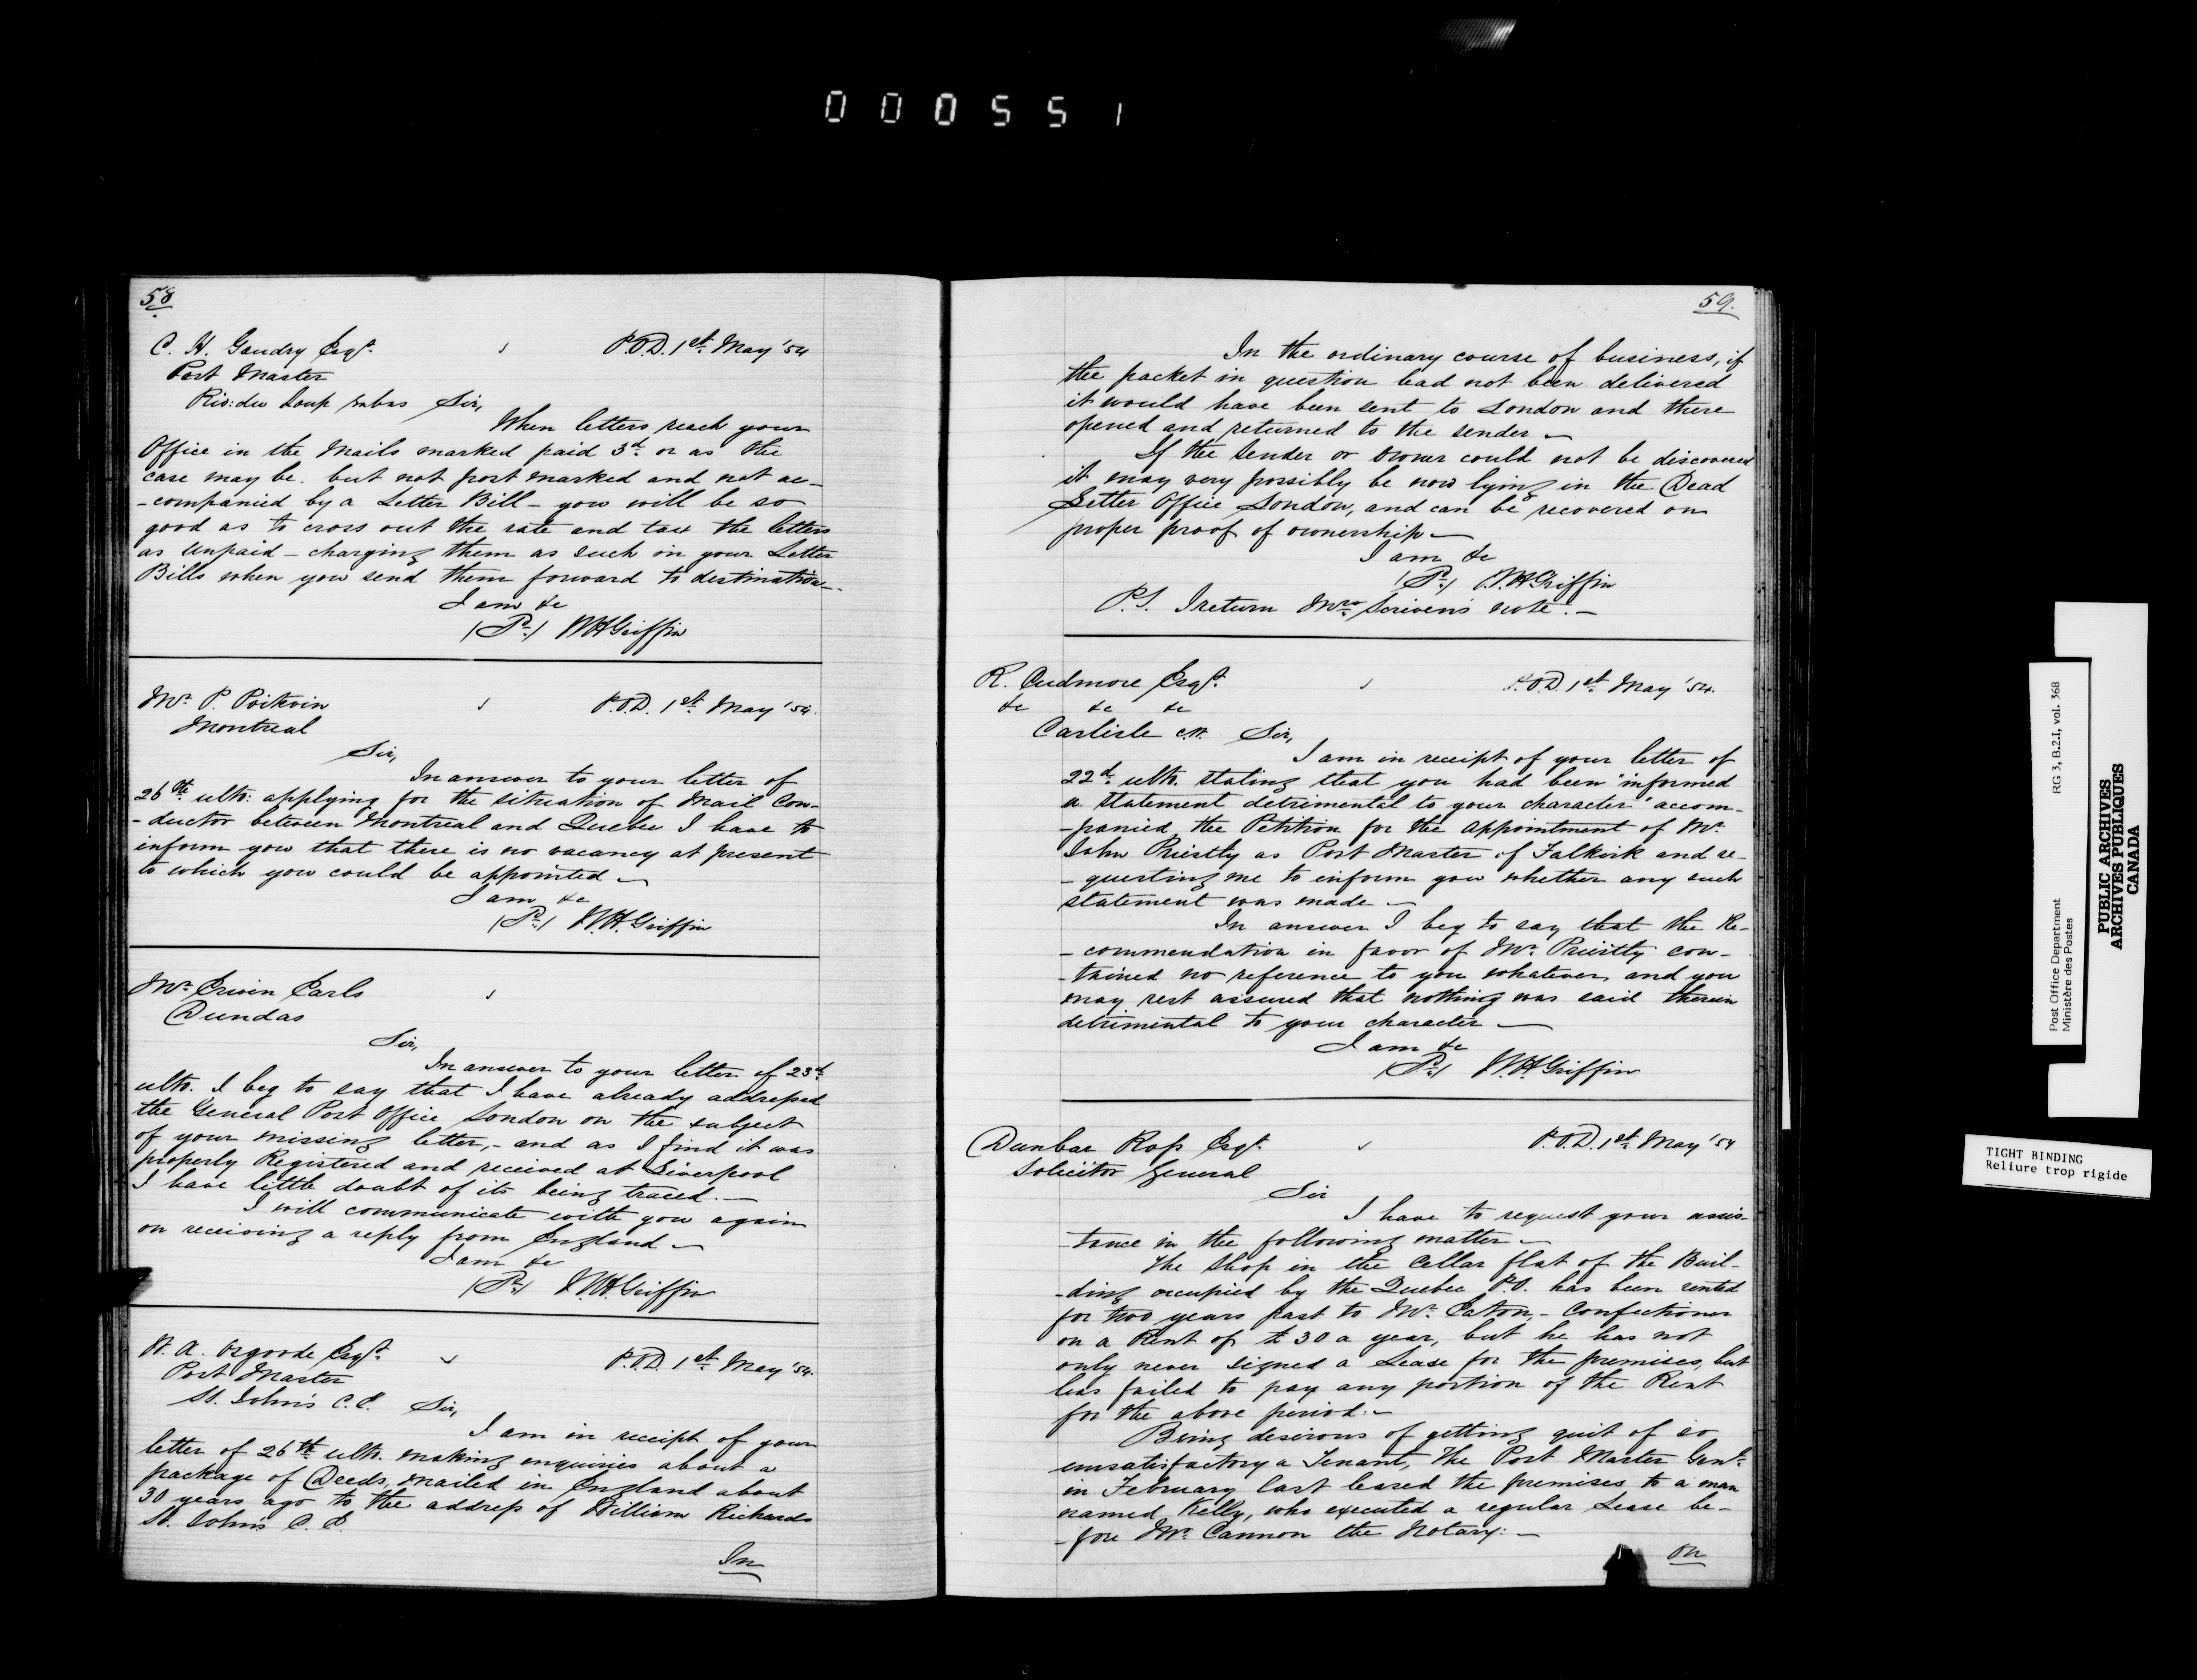 000551
58
C. H. Gaudry Esqr.
P.O.D. 1st. May '54
Post Master
Riv: du Loup enbas Sir,
When letters reach your
Office in the Mails marked paid 3d. or as the
case may be. but not post marked and not ac-
-companied by a Letter Bill - you will be so
good as to cross out the rate and tax the letters
as Unpaid - charging them as such in your Letter
Bills when you send them forward to destination.
I am &c
W H Griffin
Mr. P. Poitvin
P.O.D. 1st. May '54.
Montreal
Sir,
In answer to your letter of
26th. ulto: applying for the situation of Mail Con-
-ductor between Montreal and Quebec I have to
inform you that there is no vacancy at present
to which you could be appointed -
I am &c
W. H. Griffin
Mr. Erwin Earls
Dundas
Sir,
In answer to your letter of 23d.
ulto. I beg to say that I have already addressed
the General Post Office London on the subject
of your missing letter, - and as I find it was
properly Registered and received at Liverpool
I have little doubt of its being traced. -
I will communicate with you again
on receiving a reply from England -
I am &c
W. H. Griffin
W. A. Osgoode Esqr.
P.O.D. 1st. May '54.
Post Master
St. John's C.E. Sir,
I am in receipt of your
letter of 26th ulto. making enquiries about a
package of Deeds, mailed in England about
30 years ago to the address of William Richards
St. John's C.E.
In
59.
In the ordinary course of business, if
the packet in question had not been delivered
it would have been sent to London and there
opened and returned to the sender -
If the Sender or Owner could not be discovered
it may very possibly be now lying in the Dead
Letter Office London, and can be recovered on
proper proof of ownership -
I am &c
W. H. Griffin
P.S. I return Mrs. Scriven's note. -
R. Cudmore Esqr.
P.O.D. 1st May '54.
&c &c &c
Carlisle C.W. Sir,
I am in receipt of your letter of
22d. ulto. stating that you had been "informed
a statement detrimental to your character" accom-
-panied the Petition for the appointment of Mr.
John Priestly as Post Master of Falkirk and re-
-questing me to inform you whether any such
statement was made -
In answer I beg to say that the Re-
-commendation in favor of Mr. Priestly con-
-tained no reference to you whatever, and you
may rest assured that nothing was said therein
detrimental to your character -
I am &c
W. H. Griffin
Dunbar Ross Esqr.
P.O.D. 1st. May '54
Solicitor General
Sir
I have to request your assis-
-tance in the following matter -
The Shop in the Cellar flat of the Buil-
-ding occupied by the Quebec P.O. has been rented
for two years past to Mr. Eaton, - Confectioner
on a Rent of £30 a year, but he has not
only never signed a Lease for the premises, but
has failed to pay any portion of the Rent
for the above period: -
Being desirous of getting quit of so
unsatisfactory a Tenant, The Post Master Genl.
in February last leased the premises to a man
named Kelly, who executed a regular Lease be-
-fore Mr. Cannon the Notary: -
On
Post Office Department
Ministère des Postes
RG 3, B.2.I, vol. 368
PUBLIC ARCHIVES
ARCHIVES PUBLIQUES
CANADA
TIGHT BINDING
Reliure trop rigide